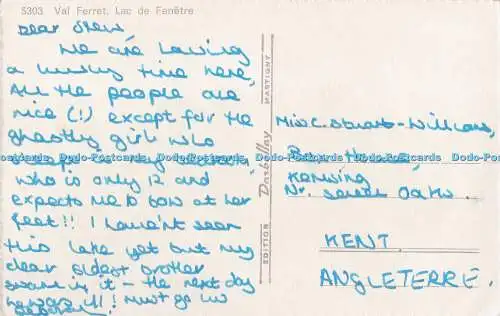 5303 Val Ferret. Lac de Fenêtre
Dear Shew,
We are having
a lovely time here,
All the people are
nice (!) except for the
ghastly girl who
who is only 12 and
expects me to bow at her
feet!! I haven't seen
this lake yet but my
dear oldest brother
swam in it – the next day
he was ill! Must go now
Deborah
EDITION Darbellay MARTIGNY
Miss C. Stuart-Williams,
House,
Kemsing
Nr. Seven Oaks.
KENT.
ANGLETERRE.
Dodo-Postcards Dodo-Postcards Dodo-Postcards Dodo-Postcards Dodo-Postcards Dodo-Postcards